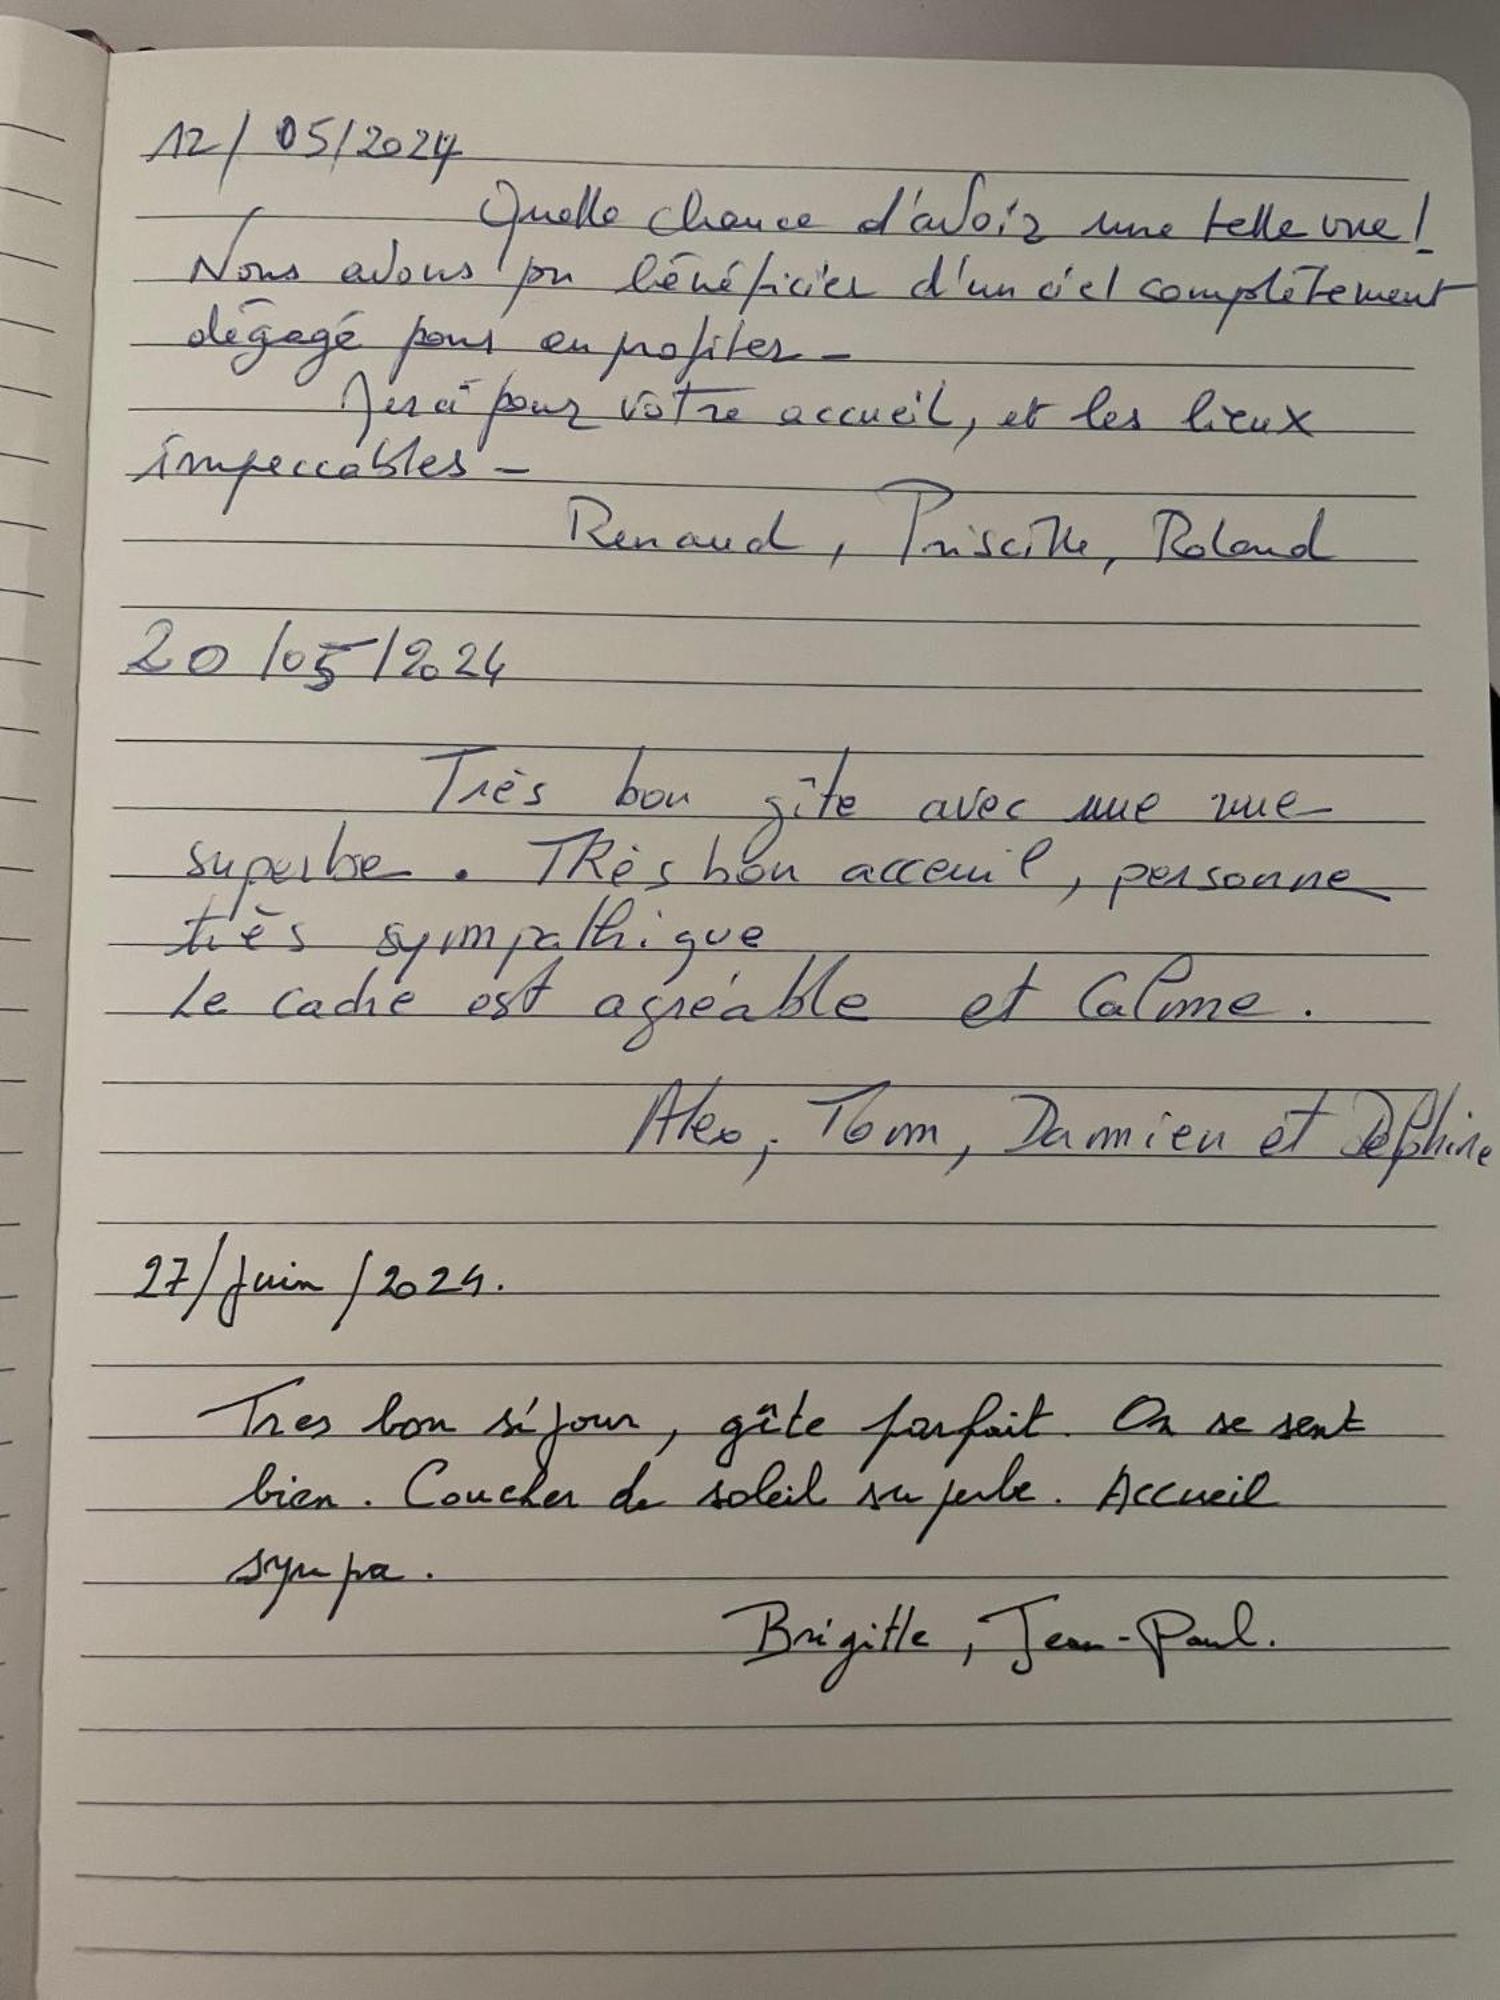 12/05/2024
Quelle chance d'avoir une telle vue!
Nous avons pu bénéficier d'un ciel complètement
dégagé pour en profiter -
Merci pour votre accueil, et les lieux
impeccables -
Renaud, Priscille, Roland
20/05/2024
Très bon gîte avec une vue
superbe. TRès bon acceuil, personne
très sympathique
Le cadre est agréable et Calme.
Alex, Tom, Damien et Delphine
27/Juin/2024.
Tres bon séjour, gîte parfait. On se sent
bien. Coucher de soleil superbe. Accueil
sympa.
Brigitte, Jean-Paul.